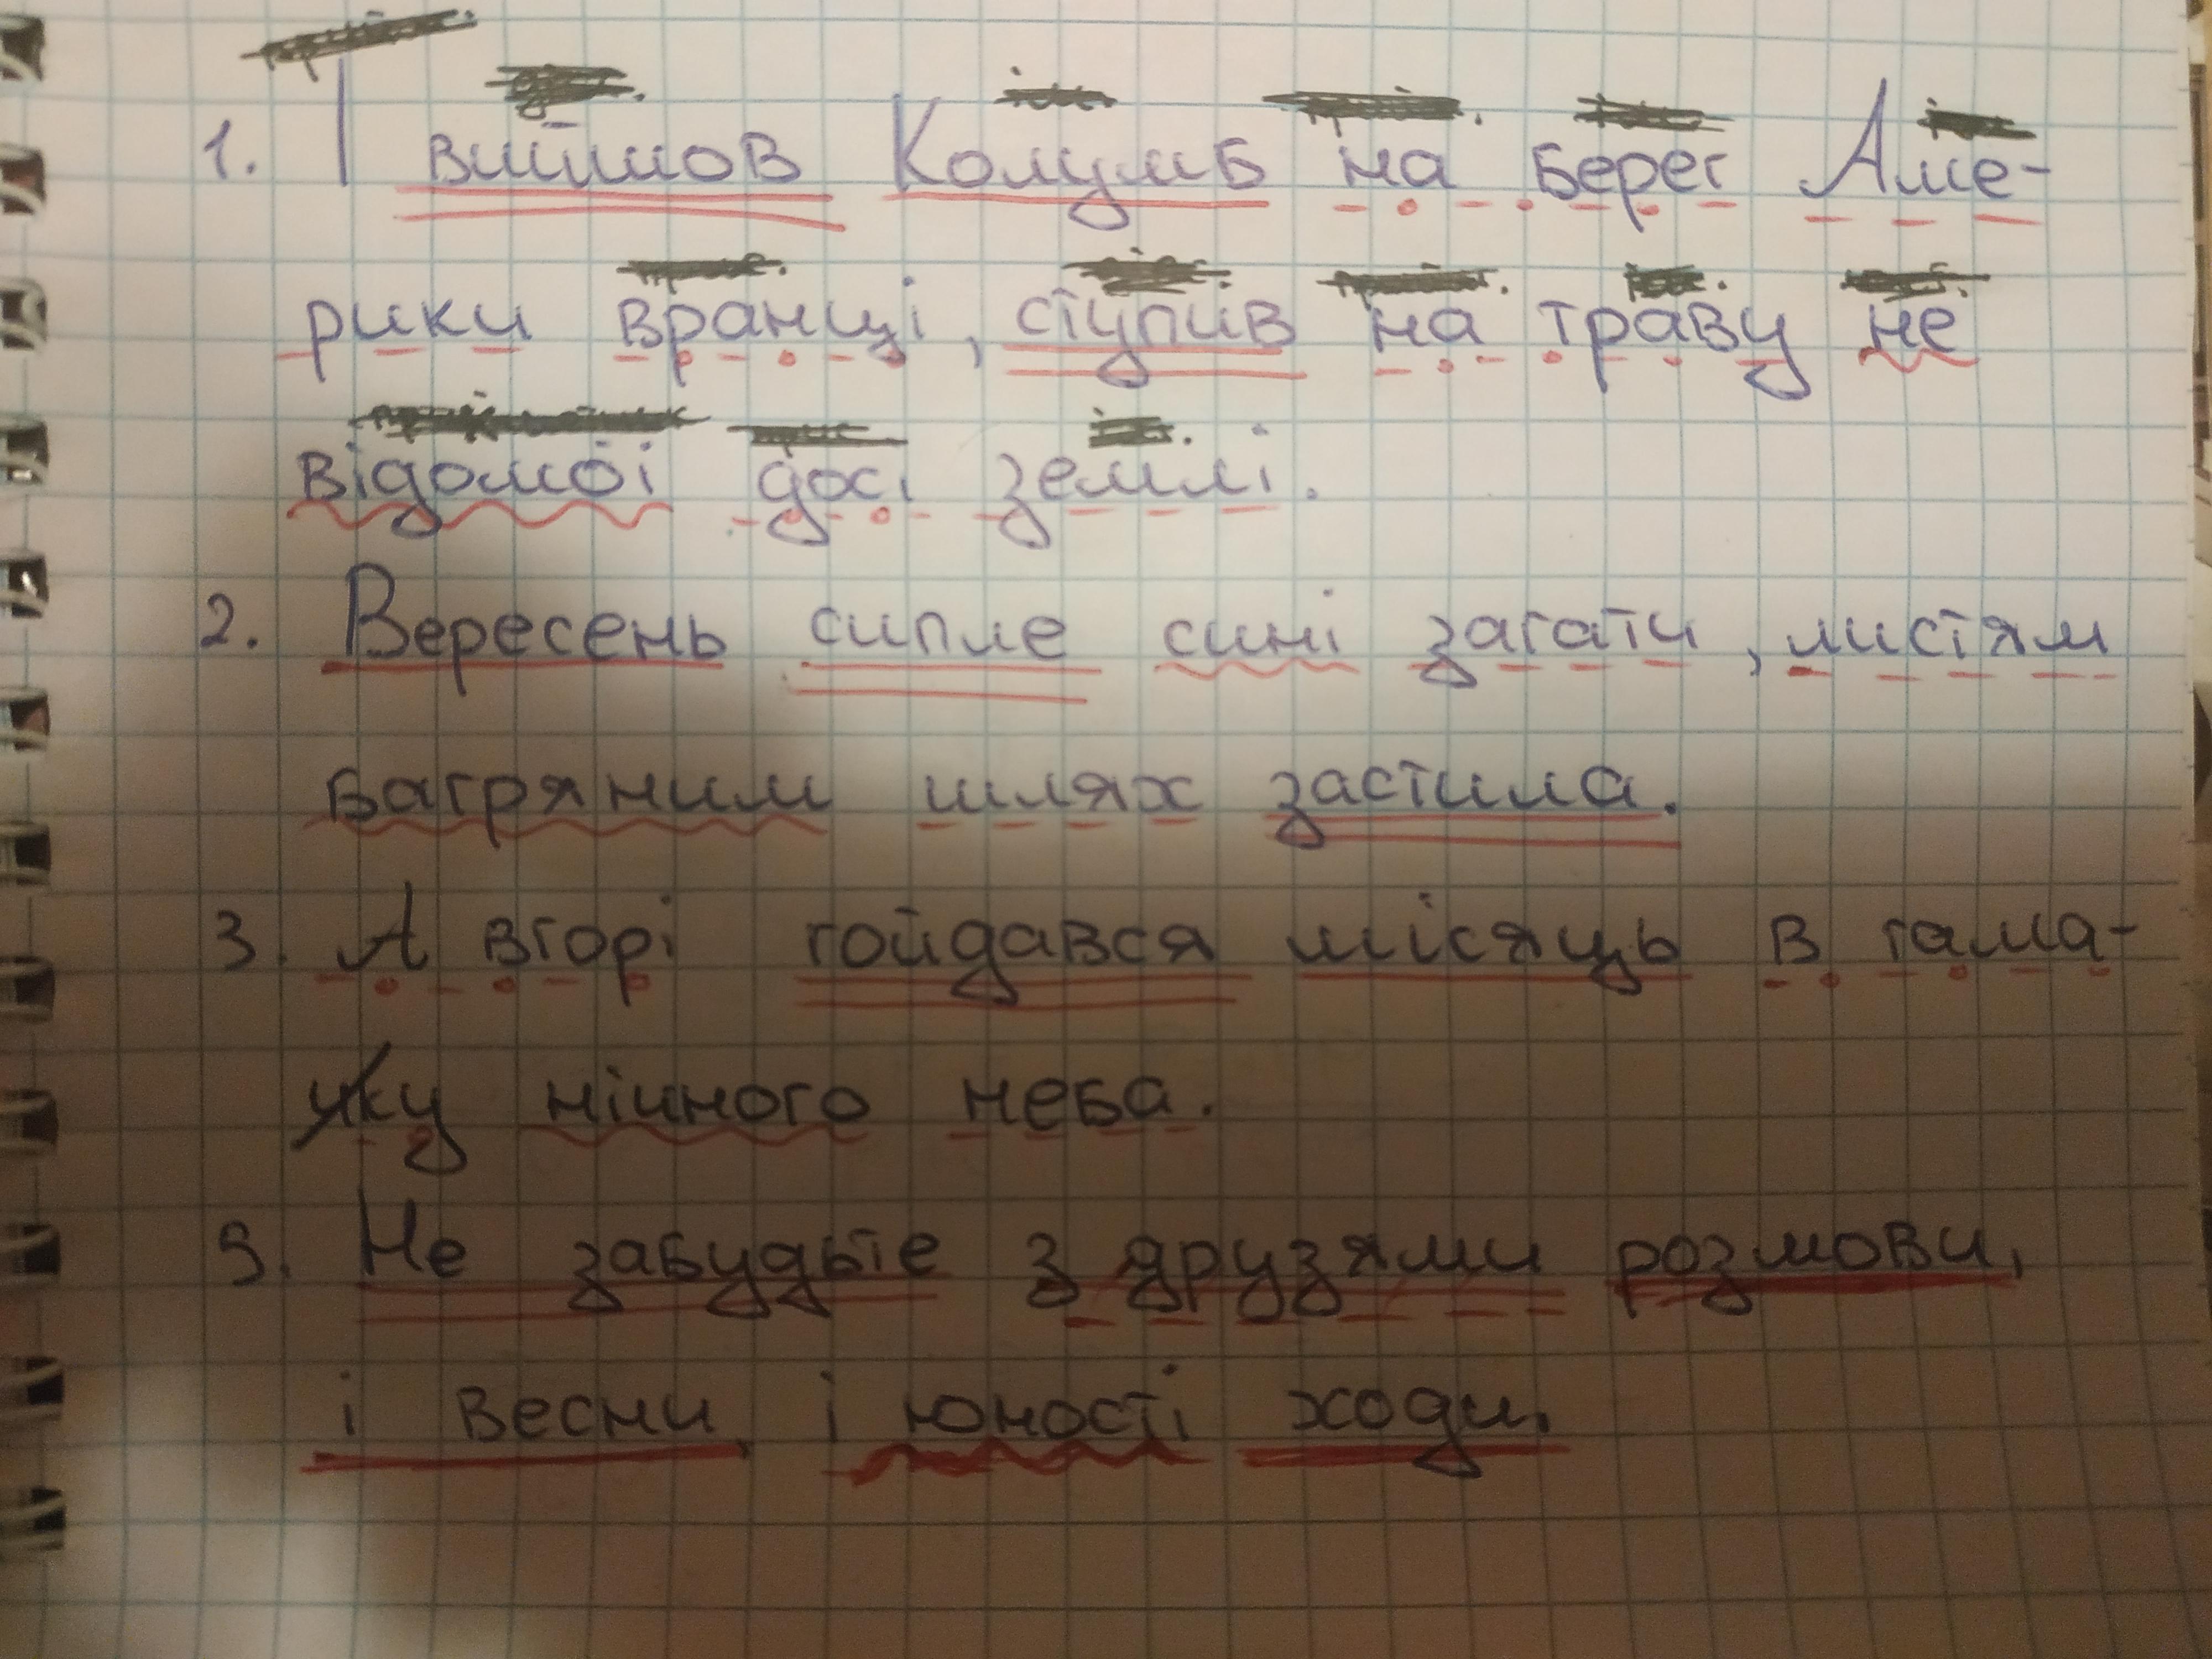 1. І вийшов Колумб на берег Аме-
рики вранці, ступив на траву не
відомої досі землі.
2. Вересень сипле сині загати, листям
багряним шлях застила.
3. А вгорі гойдався місяць в гама-
ку нічного неба.
5. Не забудьте з друзями розмови,
і весни, і юності ходи.